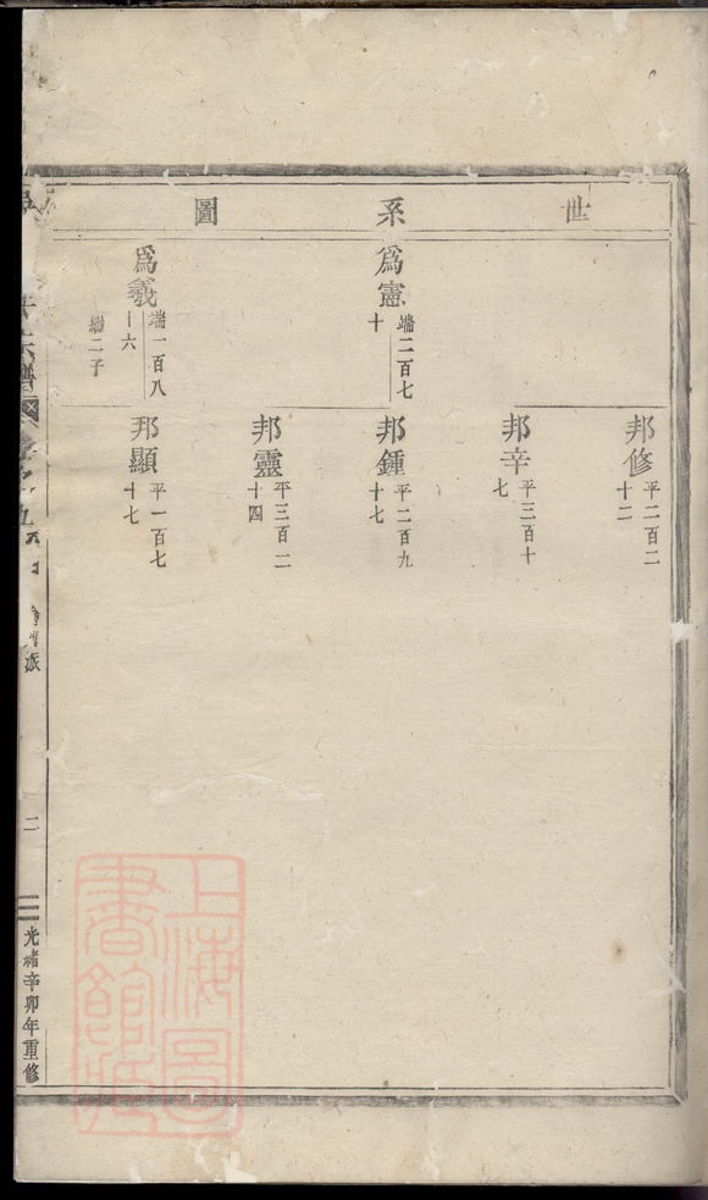 世系圖
邦修
平二百二
十二
邦辛
平三百十
七
爲憲
端二百七
十
邦鍾
平二百九
十七
邦靈
平三百二
十四
爲羲
端一百八
十六
繼二子
邦顯
平一百七
十七
派
二
光緒辛卯年重修
上海圖
書館藏